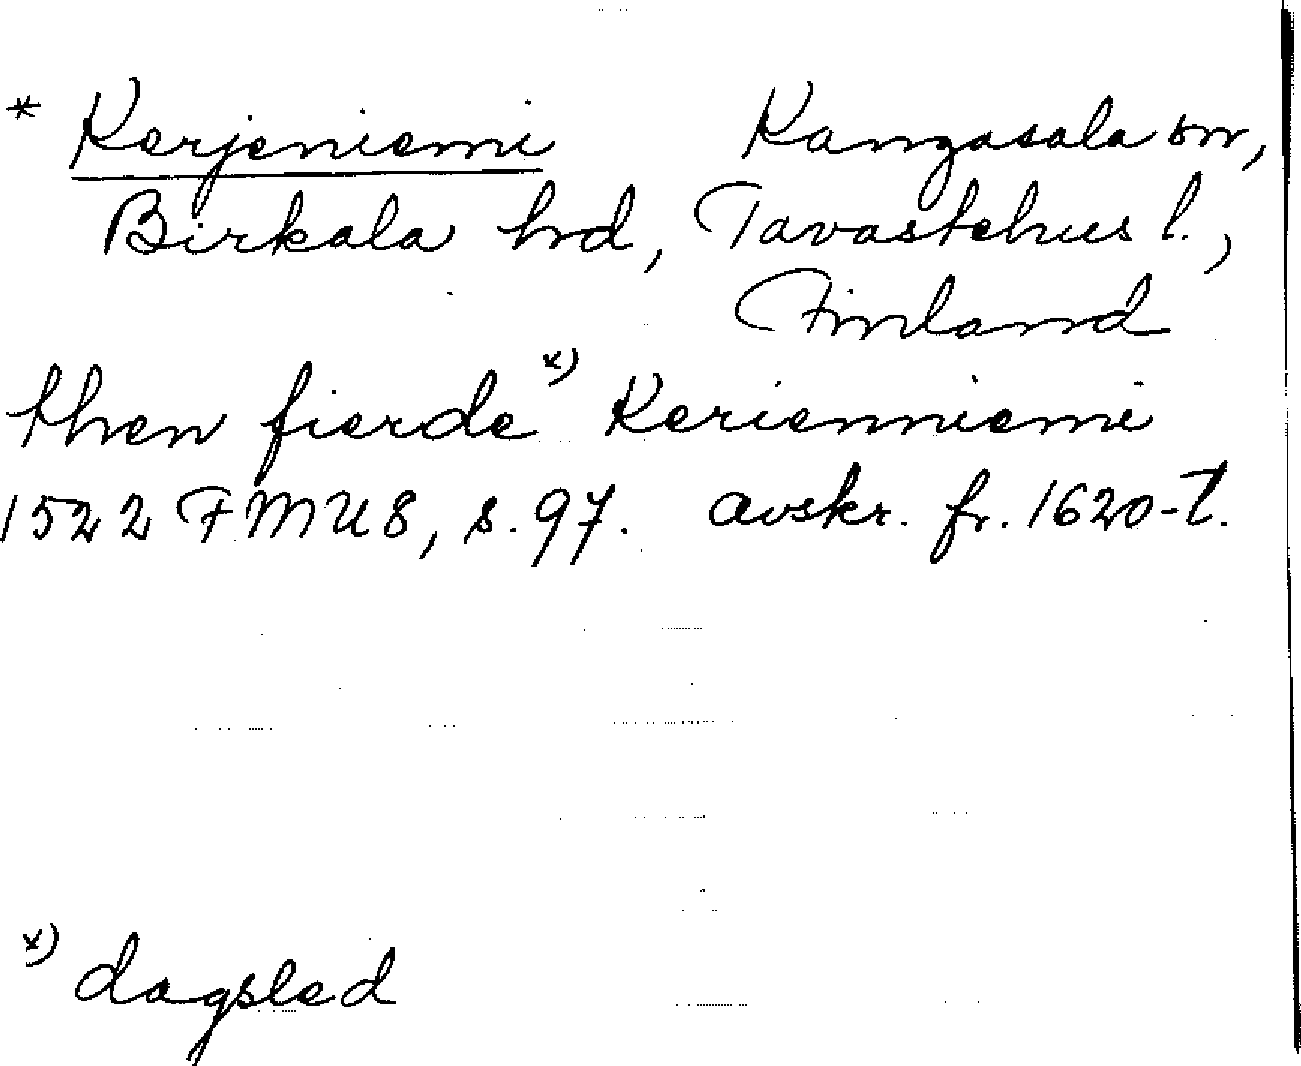 * Kerjeniemi Kangasala sn,
Birkala hd, Tavastehus l.,
Finland
then fierde x) Kerienniemi
1522 FMU 8, s. 97. avskr. fr. 1620-t.
x) dagsled